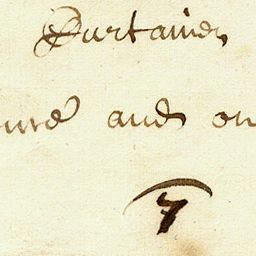 Curtaines
and on
7